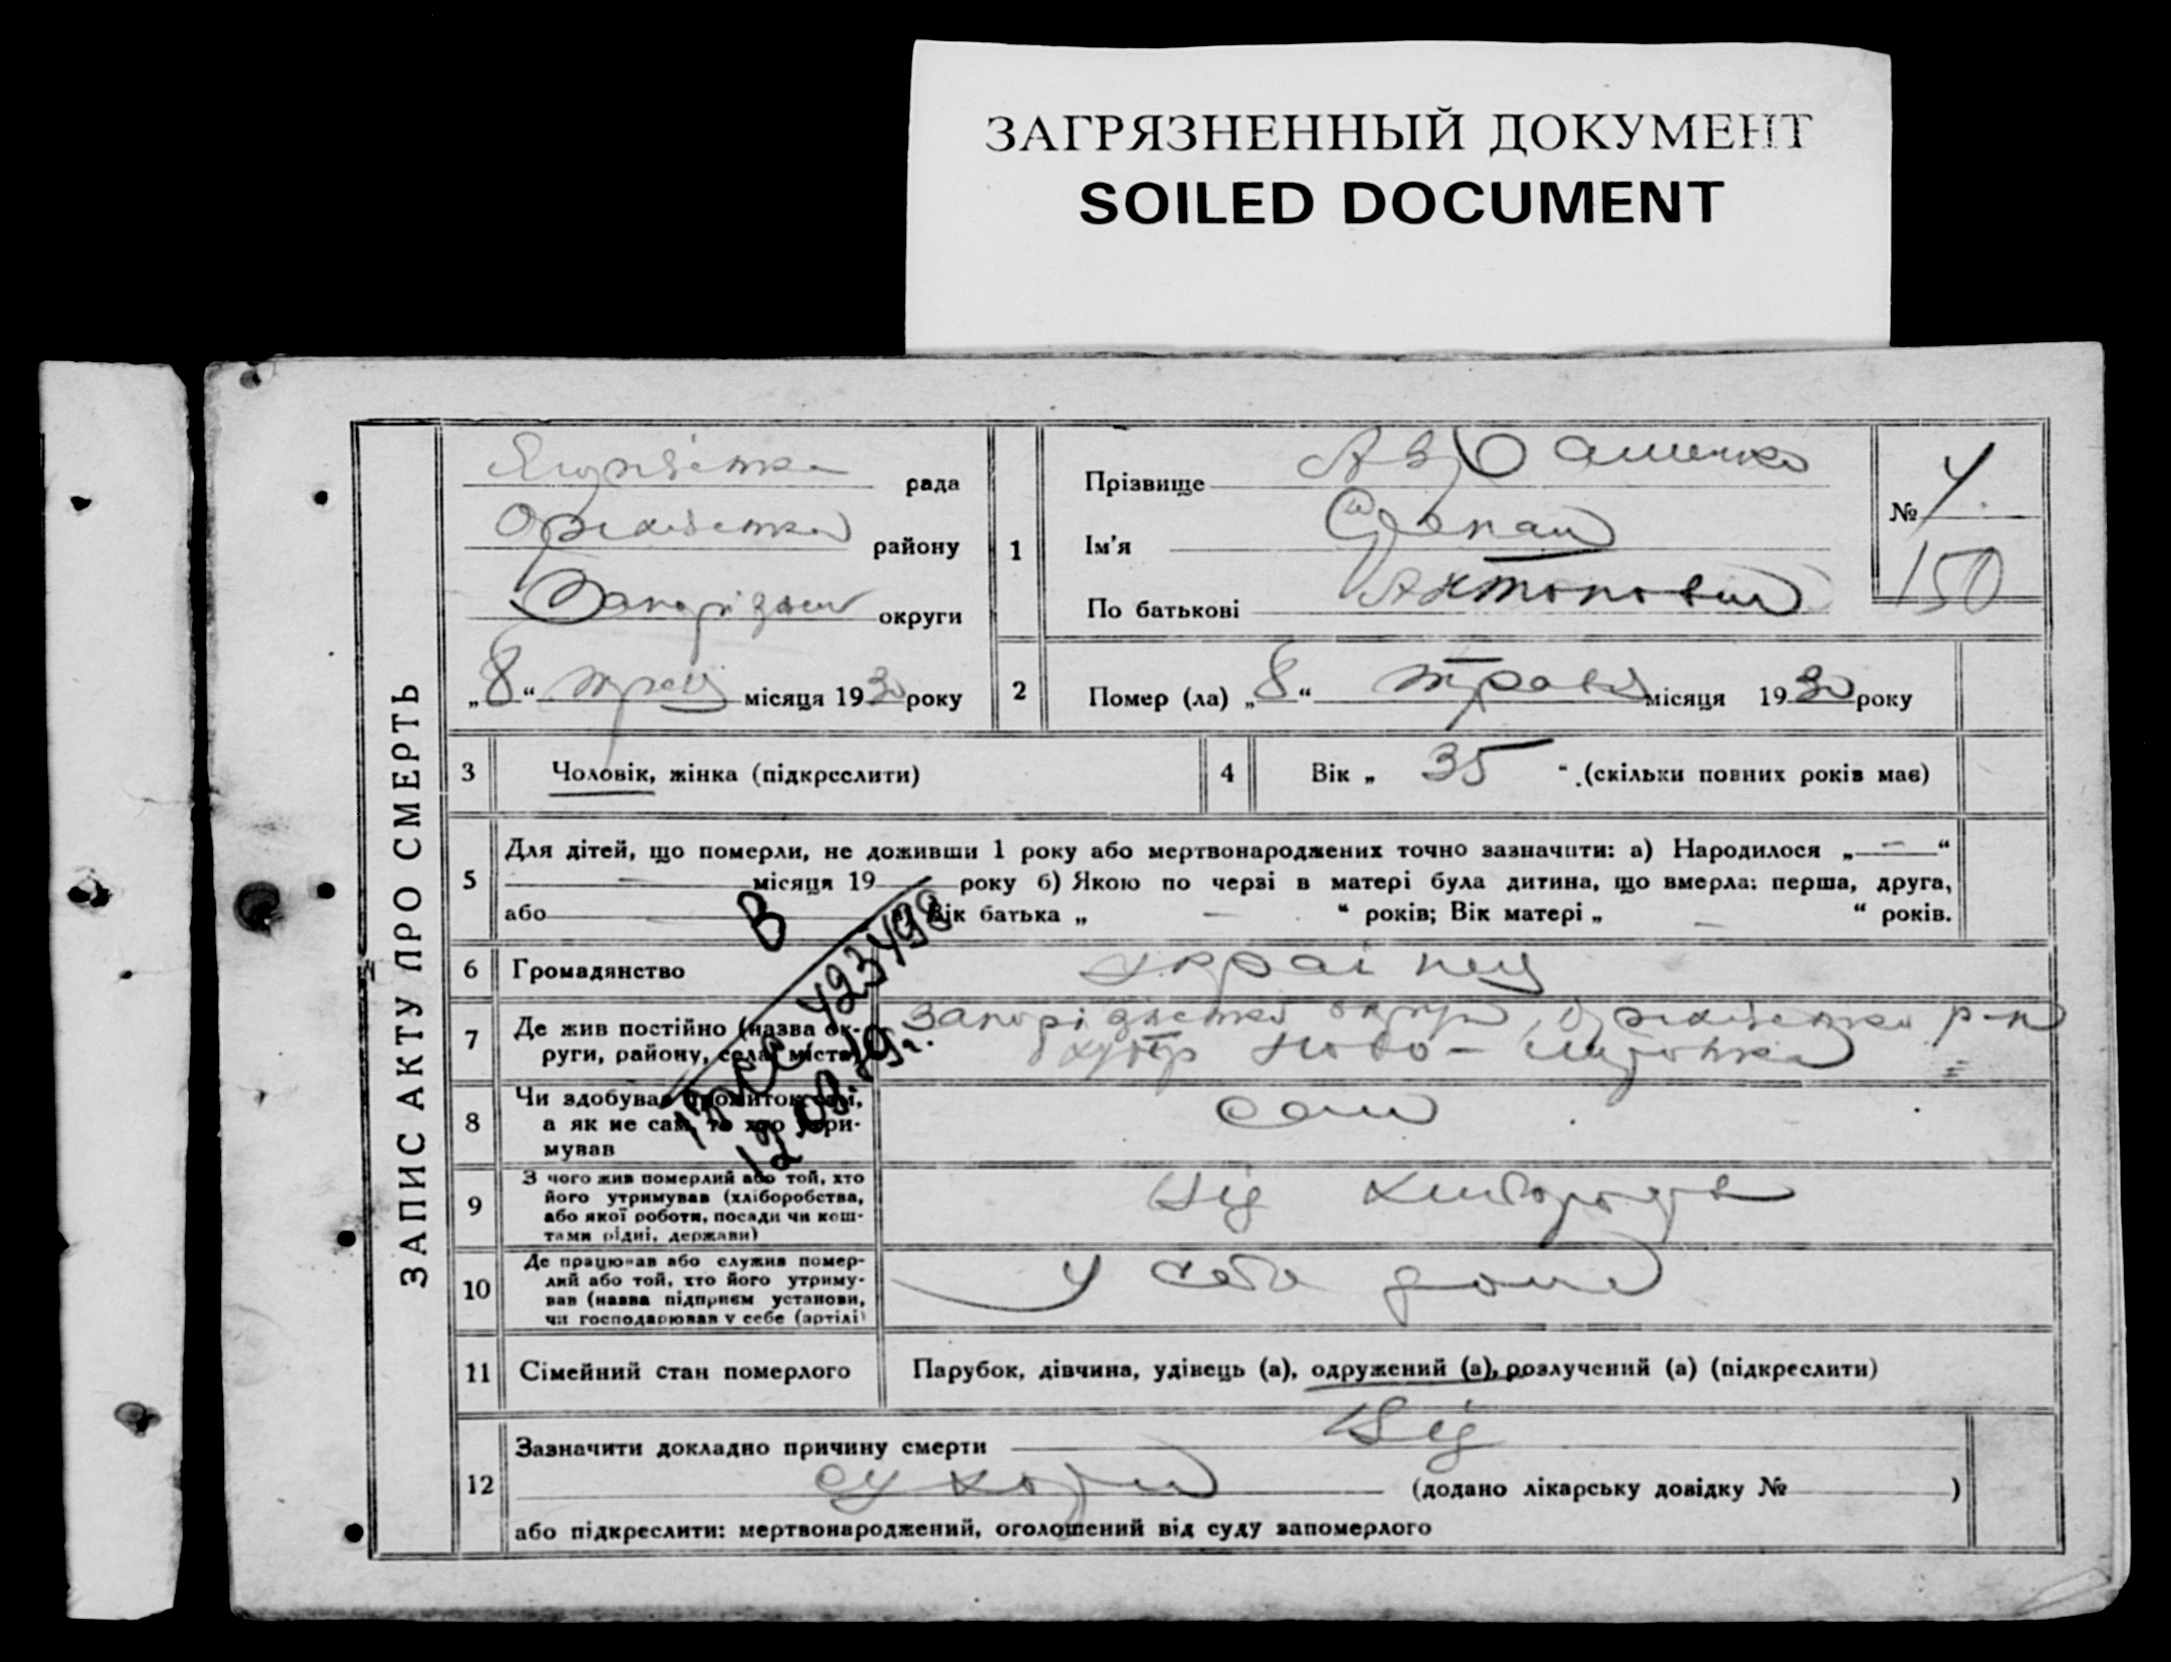 ЗАГРЯЗНЕННЫЙ ДОКУМЕНТ
SOILED DOCUMENT
ЗАПИС АКТУ ПРО СМЕРТЬ
рада
району
округи
„8“ трав місяця 1930 року
1
Прізвище
Ім'я Степан
По батькові Антонович
№ 4
150
2 Помер (ла) „8“ травня місяця 1930 року
3 Чоловік, жінка (підкреслити)
4 Вік „ 35 “ (скільки повних років має)
5 Для дітей, що померли, не доживши 1 року або мертвонароджених точно зазначити: а) Народилося „ — “
місяця 19 року б) Якою по черзі в матері була дитина, що вмерла: перша, друга,
або Вік батька „ — “ років; Вік матері „ — “ років.
В
423498
12.08.19 г.
6 Громадянство українец
7 Де жив постійно (назва ок-
руги, району, села, міста)
хутір Ново-
8 Чи здобував прожиток сам,
а як не сам, то хто утри-
мував
сам
9 З чого жив померлий або той, хто
його утримував (хліборобства,
або якої роботи, посади чи кош-
тами рідні, держави)
Від
10 Де працював або служив помер-
лий або той, хто його утриму-
вав (назва підприєм установи,
чи господарював у себе (артілі)
У себе дома
11 Сімейний стан померлого
Парубок, дівчина, удівець (а), одружений (а), розлучений (а) (підкреслити)
12 Зазначити докладно причину смерти Від
(додано лікарську довідку № )
або підкреслити: мертвонароджений, оголошений від суду запомерлого